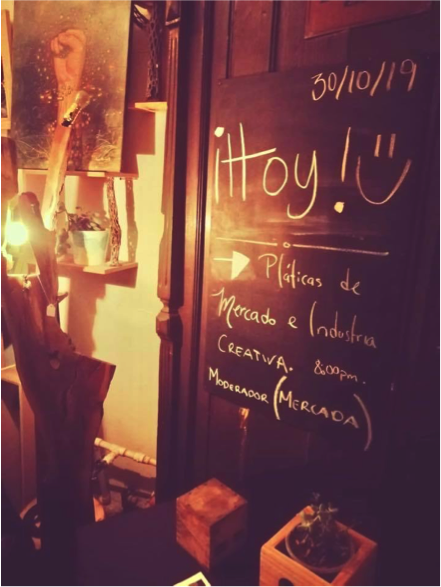 30/10/19
¡Hoy!
Pláticas de
Mercado e Industria
CREATIVA. 8:00pm.
MODERADOR (MERCADA)